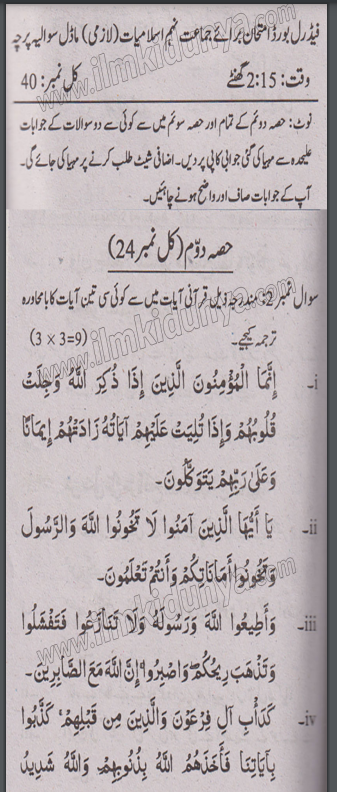 فیڈرل بورڈ امتحان برائے جماعت نہم اسلامیات (لازمی) ماڈل سوالیہ پرچہ
وقت: 2:15 گھنٹے کل نمبر: 40
نوٹ: حصہ دوئم کے تمام اور حصہ سوئم میں سے کوئی سے دو سوالات کے جوابات
علیحدہ سے مہیا کی گئی جوابی کاپی پر دیں۔ اضافی شیٹ طلب کرنے پر مہیا کی جائے گی۔
آپ کے جوابات صاف اور واضح ہونے چاہئیں۔
حصہ دوّم (کل نمبر 24)
سوال نمبر 2: مندرجہ ذیل قرآنی آیات میں سے کوئی سی تین آیات کا بامحاورہ
ترجمہ کیجیے۔ (3 x 3=9)
i۔ إِنَّمَا الْمُؤْمِنُونَ الَّذِينَ إِذَا ذُكِرَ اللَّهُ وَجِلَتْ
قُلُوبُهُمْ وَإِذَا تُلِيَتْ عَلَيْهِمْ آيَاتُهُ زَادَتْهُمْ إِيمَانًا
وَعَلَىٰ رَبِّهِمْ يَتَوَكَّلُونَ۔
ii۔ يَا أَيُّهَا الَّذِينَ آمَنُوا لَا تَخُونُوا اللَّهَ وَالرَّسُولَ
وَتَخُونُوا أَمَانَاتِكُمْ وَأَنتُمْ تَعْلَمُونَ۔
iii۔ وَأَطِيعُوا اللَّهَ وَرَسُولَهُ وَلَا تَنَازَعُوا فَتَفْشَلُوا
وَتَذْهَبَ رِيحُكُمْ وَاصْبِرُوا إِنَّ اللَّهَ مَعَ الصَّابِرِينَ۔
iv۔ كَدَأْبِ آلِ فِرْعَوْنَ وَالَّذِينَ مِن قَبْلِهِمْ كَذَّبُوا
بِآيَاتِنَا فَأَخَذَهُمُ اللَّهُ بِذُنُوبِهِمْ وَاللَّهُ شَدِيدُ
www.ilmkidunya.com
www.ilmkidunya.com
www.ilmkidunya.com